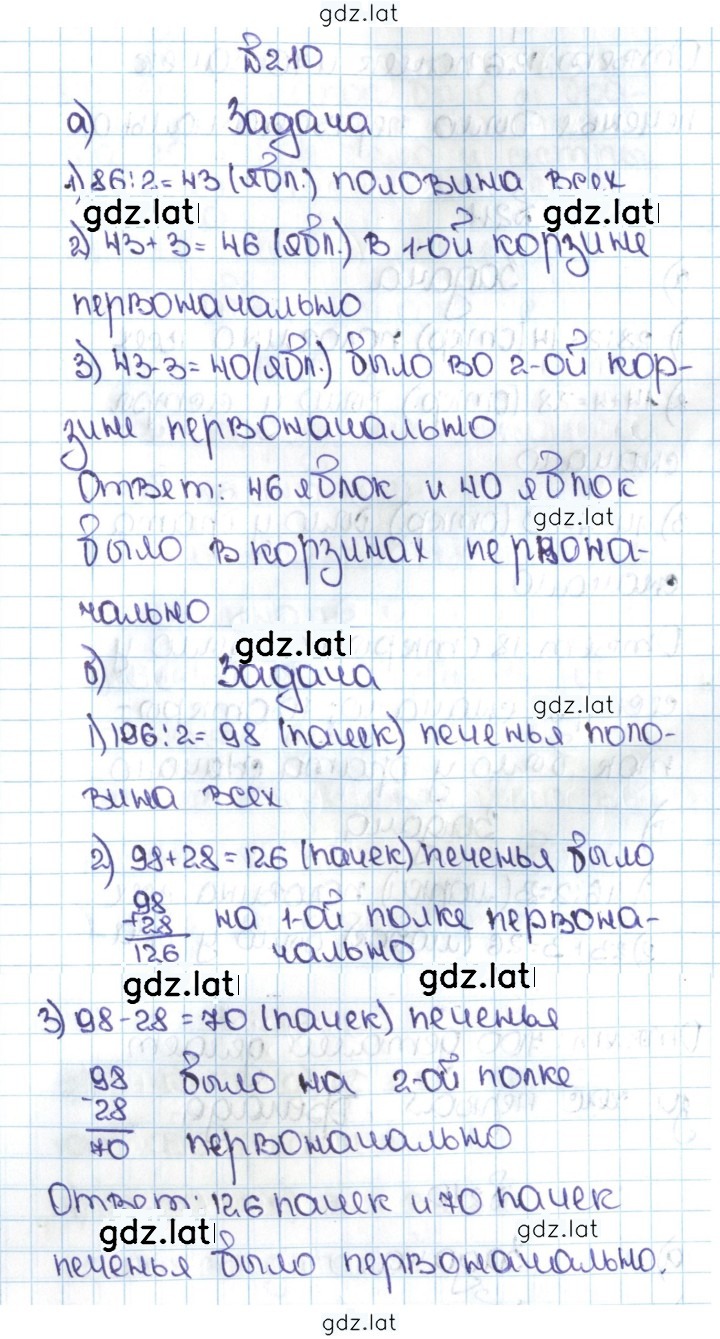 gdz.lat
№210
а) Задача
1) 86:2=43 (ябл.) половина всех
gdz.lat
2) 43+3=46 (ябл.) в 1-ой корзине
первоначально
3) 43-3=40 (ябл.) было во 2-ой кор-
зине первоначально
Ответ: 46 яблок и 40 яблок
gdz.lat
было в корзинах первона-
чально
gdz.lat
б) Задача
gdz.lat
1) 196:2=98 (пачек) печенья поло-
вина всех
2) 98+28=126 (пачек) печенья было
98
+28
126
на 1-ой полке первона-
чально
gdz.lat
gdz.lat
3) 98-28=70 (пачек) печенья
98
-28
70
было на 2-ой полке
первоначально
Ответ: 126 пачек и 70 пачек
gdz.lat
gdz.lat
печенья было первоначально.
gdz.lat